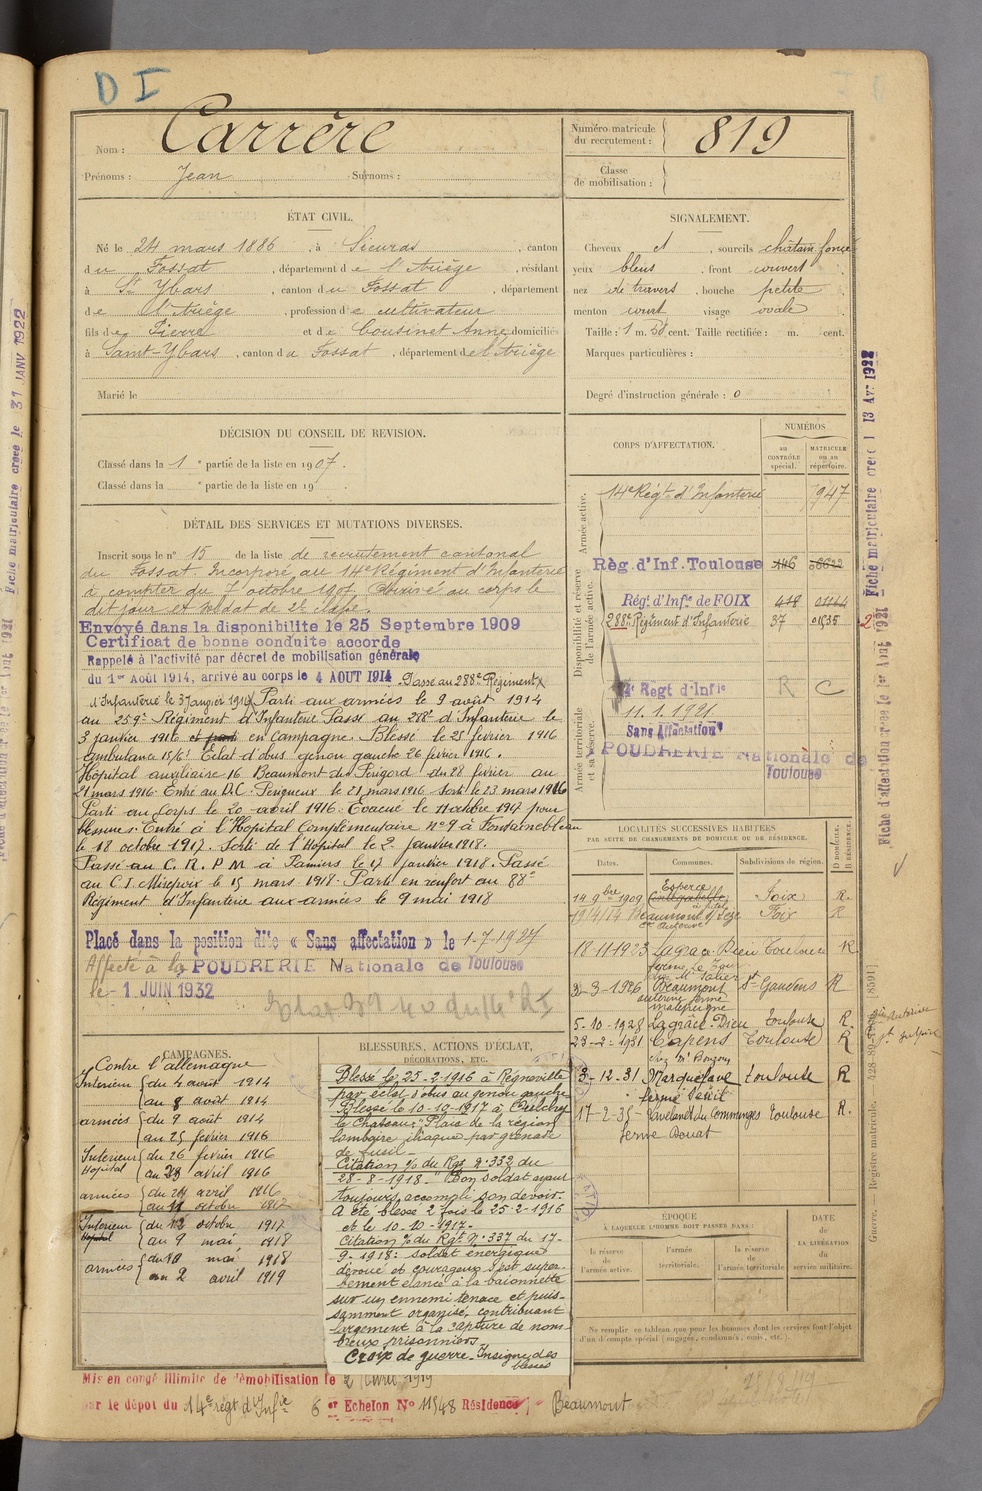 D I
Nom : Carrère
Prénoms : Jean Surnoms :
Numéro matricule du recrutement : 819
Classe de mobilisation :
ÉTAT CIVIL.
Né le 24 mars 1886, à Sieuras, canton
du Fossat, département de l'Ariège, résidant
à St Ybars, canton du Fossat, département
de l'Ariège, profession de cultivateur
fils de Pierre et de Cousinet Anne domiciliés
à Saint-Ybars, canton du Fossat, département de l'Ariège
Marié le
SIGNALEMENT.
Cheveux et, sourcils châtain foncé
yeux bleus, front couvert
nez de travers, bouche petite
menton court visage ovale
Taille : 1 m. 50 cent. Taille rectifiée : m. cent.
Marques particulières :
Degré d'instruction générale : 0
DÉCISION DU CONSEIL DE REVISION.
Classé dans la 1 e partie de la liste en 1907.
Classé dans la e partie de la liste en 19
DÉTAIL DES SERVICES ET MUTATIONS DIVERSES.
Inscrit sous le n° 15 de la liste de recrutement cantonal
du Fossat. Incorporé au 14e Régiment d'Infanterie
à compter du 7 octobre 1907. Arrivé au corps le
dit jour et soldat de 2e classe.
Envoyé dans la disponibilité le 25 Septembre 1909
Certificat de bonne conduite accordé
Rappelé à l'activité par décret de mobilisation générale
du 1er Août 1914, arrivé au corps le 4 AOUT 1914 Passé au 288e Régiment
d'Infanterie le 3 Janvier 1916 Parti aux armées le 9 août 1914
au 259e Régiment d'Infanterie Passé au 288e d'Infanterie le
3 janvier 1916 en Campagne. Blessé le 25 février 1916
Ambulance 15/6 Eclat d'obus genou gauche 26 février 1916.
Hôpital auxiliaire 16 Beaumont du Périgord du 28 février au
21 mars 1916. Entré au D.C. Périgueux le 21 mars 1916 Sorti le 23 mars 1916
Parti au Corps le 20 avril 1916. Evacué le 11 octobre 1917 pour
blessures. Entré à l'Hopital Complémentaire n° 9 à Fontainebleau
le 18 octobre 1917. Sorti de l'Hopital le 2 Janvier 1918.
Passé au C. R. P M à Pamiers le 17 janvier 1918. Passé
au C.I. Mirepoix le 15 mars 1918. Parti en renfort au 88e
Régiment d'Infanterie aux armées le 9 mai 1918
Placé dans la position dite « Sans affectation » le 1-7-1927
Affecté à la POUDRERIE Nationale de Toulouse
le - 1 JUIN 1932
CORPS D'AFFECTATION.
NUMÉROS
au CONTRÔLE spécial.
MATRICULE ou au répertoire.
Armée active.
14e Régt d'Infanterie 947
Disponibilité et réserve de l'armée active.
Rég. d'Inf. Toulouse 446
Régt d'Infie de FOIX 418 01164
288e Régiment d'Infanterie 37 01535
Armée territoriale et sa réserve.
14e Regt d'Infie R C
11.1.1921
Sans Affectation
POUDRERIE Nationale de
Toulouse
LOCALITÉS SUCCESSIVES HABITÉES
PAR SUITE DE CHANGEMENTS DE DOMICILE OU DE RÉSIDENCE.
Dates. Communes. Subdivisions de région. D DOMICILE. R RÉSIDENCE.
14 9bre 1909 Esperce Foix R.
Beaumont s/ Lèze Foix R
18-11-1923 Lagrace Dieu Toulouse R
3-1926 Beaumont St Gaudens R
5-10-1928 Lagrâce-Dieu Toulouse R.
23-2-1931 Capens Toulouse R
3-12-31 Marquefave Toulouse R
17-2-35 Lavelanet du Comminges Toulouse R.
ferme Bouat
CAMPAGNES.
Contre l'allemagne
Intérieur du 4 août 1914
au 8 août 1914
armées du 9 août 1914
au 25 fevrier 1916
Intérieur Hopital du 26 fevrier 1916
au 23 avril 1916
armées du 24 avril 1916
au 11 octobre 1917
Intérieur du 12 octobre 1917
au 9 mai 1918
armées du 10 mai 1918
au 2 avril 1919
BLESSURES, ACTIONS D'ÉCLAT,
DÉCORATIONS, ETC.
Blessé le 25-2-1916 à Régnéville
par éclat d'obus au genou gauche
Blessé le 10-10-1917 à Crelchy
le Chateau: Plaie de la région
lombaire iliaque par grenade
de fusil.
Citation % du Rgt n° 332 du
28-8-1918. Bon soldat ayant
toujours accompli son devoir.
A été blessé 2 fois le 25-2-1916
et le 10-10-1917.
Citation % du Rgt n° 337 du 17-
9-1918: soldat énergique
dévoué et courageux s'est super-
bement élancé à la baionnette
sur un ennemi tenace et puis-
samment organisé, contribuant
largement à la capture de nom-
breux prisonniers.
Croix de guerre. Insigne des
blessés
ÉPOQUE
À LAQUELLE L'HOMME DOIT PASSER DANS :
la réserve de l'armée active.
l'armée territoriale.
la réserve de l'armée territoriale
DATE de LA LIBÉRATION du service militaire.
Ne remplir ce tableau que pour les hommes dont les services font l'objet
d'un décompte spécial (engagés, condamnés, omis, etc.).
Mis en congé illimité de démobilisation le 2 Avril 1919
par le dépôt du 14e régt d'Infie 6 er Echelon N° 11948 Résidence Beaumont
Fiche matriculaire créée le 31 JANV 1922
Fiche matriculaire créée l 13 Avr 1922
Fiche d'affectation créée le 1er Août 1921
Guerre. — Registre matricule. — 428-89-1906. [8591]